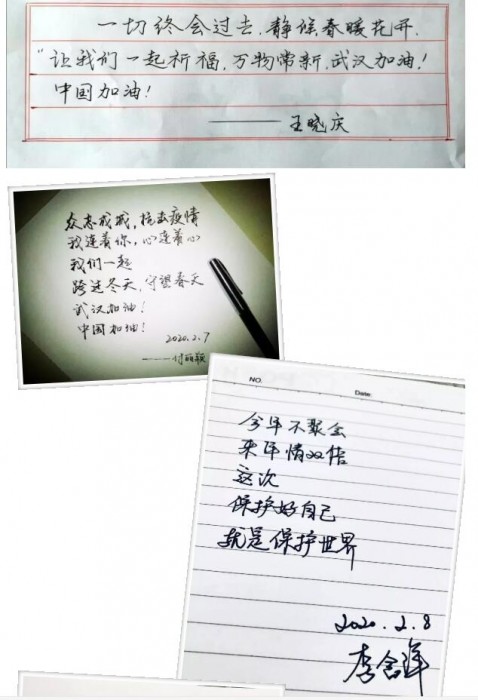 一切终会过去，静候春暖花开，
"让我们一起祈福，万物常新，武汉加油！
中国加油！
——王晓庆
众志成城，抗击疫情
我连着你，心连着心
我们一起
跨过冬天，守望春天
武汉加油！
中国加油！
2020.2.7
——付丽颖
NO.
Date:
今年不聚会
来年情双倍
这次
保护好自己
就是保护世界
2020.2.8